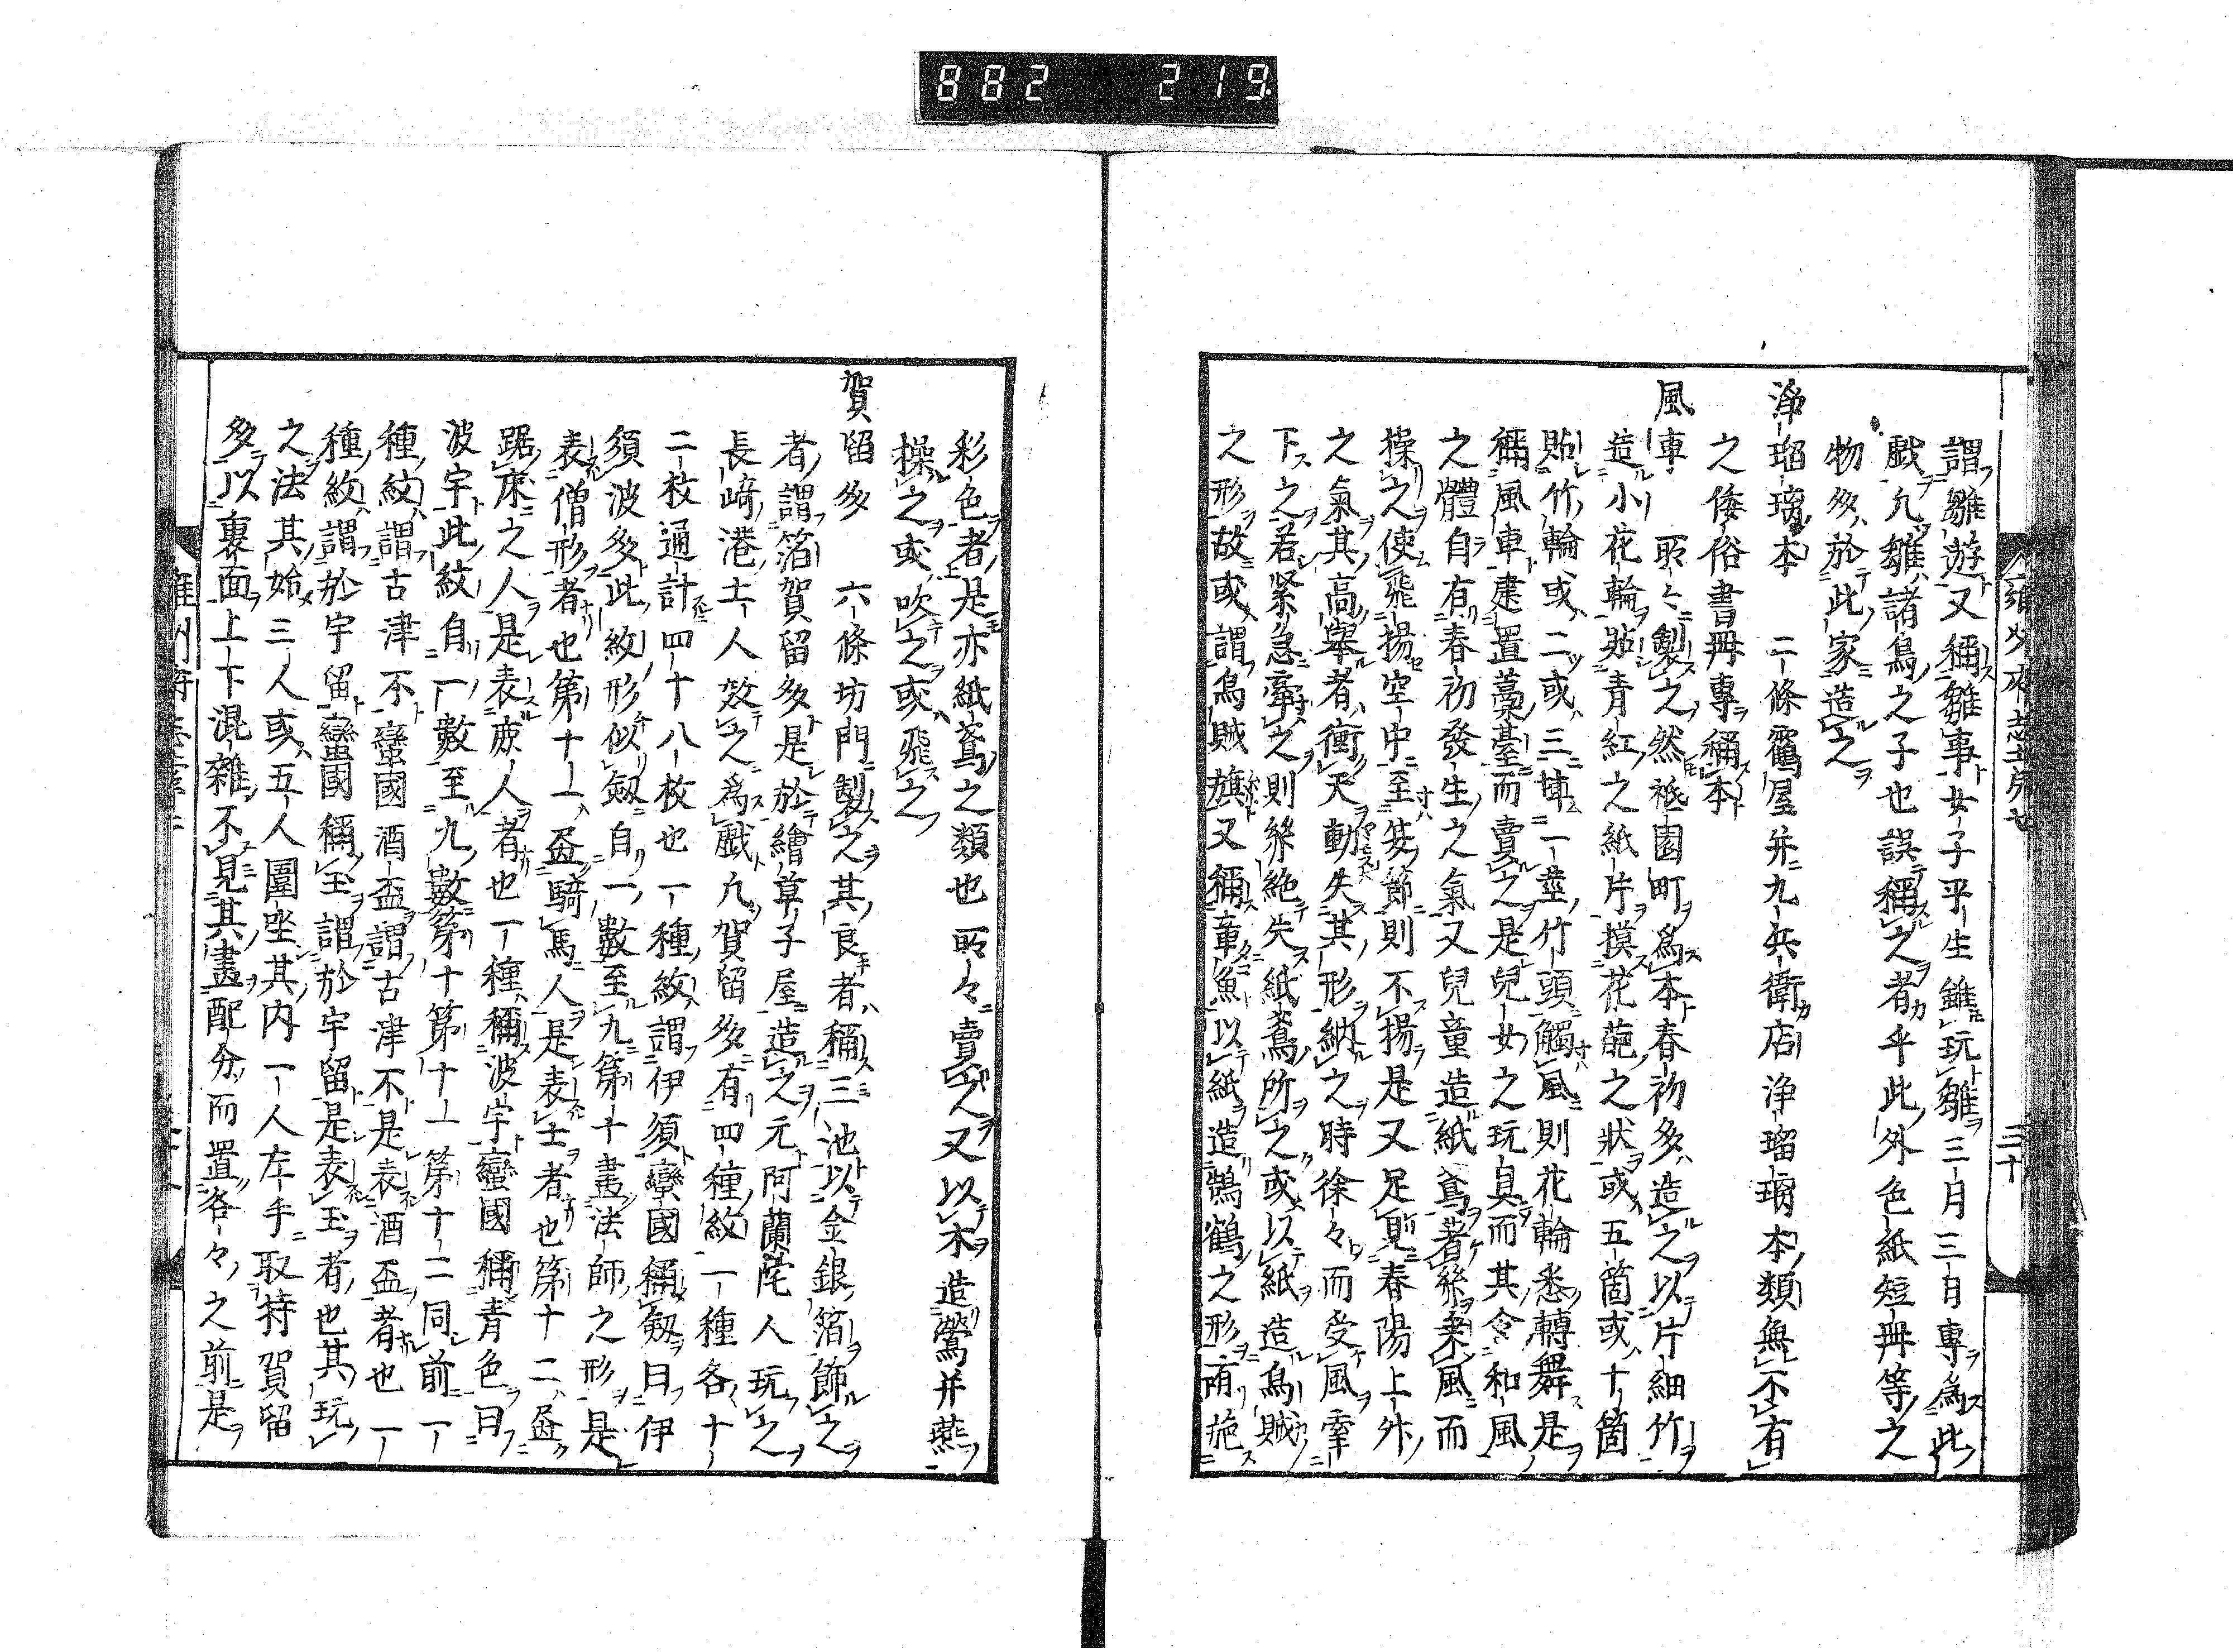 882 219
謂雛遊又稱雛事女子平生雖玩雛三月三日專爲此
戲凢雛諸鳥之子也誤稱之者乎此外色紙短冊等之
物多於此家造之
淨瑠璃本 二條鶴屋并九兵衛店淨瑠璃本類無不有
之倭俗書冊專稱本
風車 所々製之然祗園町爲本春初多造之以片細竹
造小花輪貼青紅之紙片摸花葩之狀或五箇或十箇
貼竹輪或二或三挿一莖竹頭觸風則花輪悉轉舞是
稱風車建置藁臺而賣之是兒女之玩具而其含和風
之體自有春初發生之氣又兒童造紙鳶著絲乗風而
操之使飛揚空中至筊節則不揚是又足見春陽上升
之氣其高擧者衝天動失其形納之時徐々而受風牽
下之若緊急牽之則絲絶失紙鳶所之或以紙造烏賊
之形故或謂烏賊旗又稱章魚以紙造鵠鶴之形而施
三十
彩色者是亦紙鳶之類也所々賣之又以木造鶯并燕
操之或吹之或飛之
賀留多 六條坊門製之其良者稱三池以金銀箔飾之
者謂箔賀留多是於繪草子屋造之元阿蘭陀人玩之
長崎港土人效之爲戲凢賀留多有四種紋一種各十
二枚通計四十八枚也一種紋謂伊須蠻國稱劔曰伊
須波多此紋形似劔自一數至九第十畫法師之形是
表僧形者也第十一畫騎馬人是表士者也第十二畫
踞床之人是表庶人者也一種稱波宇蠻國稱青色曰
波宇此紋自一數至九數第十第十一第十二同前一
種紋謂古津不蠻國酒盃謂古津不是表酒盃者也一
種紋謂於宇留蠻國稱玉謂於宇留是表玉者也其玩
之法其始三人或五人圍坐其内一人左手取持賀留
多以裏面上下混雜不見其畫配分而置各々之前是
雍州府志